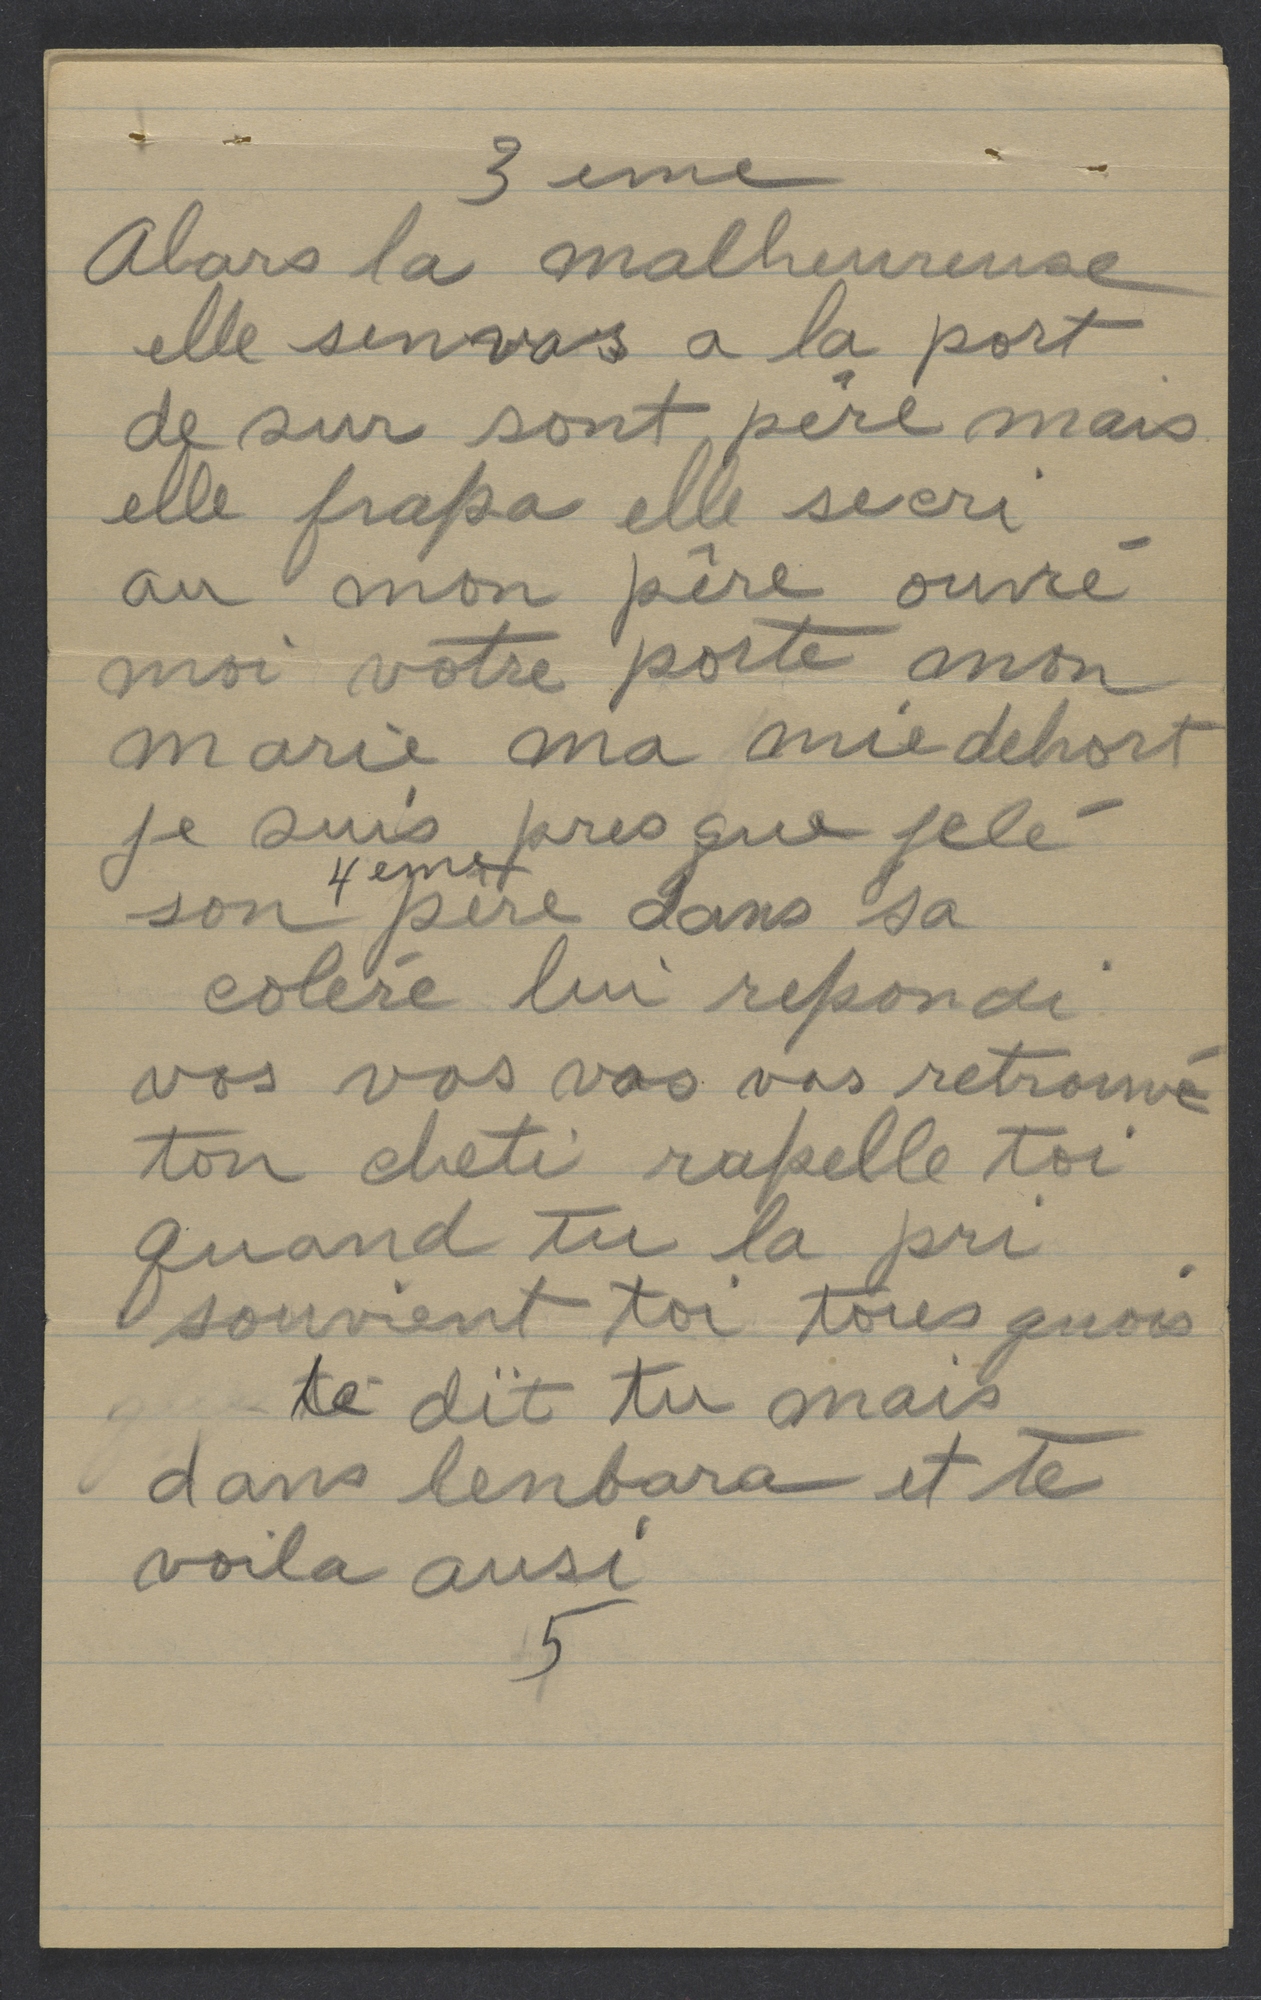 3 eme
Alars la malheureuse
elle senvas a la port
de sur sont père mais
elle frapa elle secri
au mon pêre ouvré
moi votre porte mon
marie ma mie dehort
je suis presque jelé
4 eme
son père dans sa
coleré lui repondi
vas vas vas vas retrouvé
ton cheti rapelle toi
quand tu la pri
souvient toi
te dït tu mais
dans lenbara et te
voila ausi
5